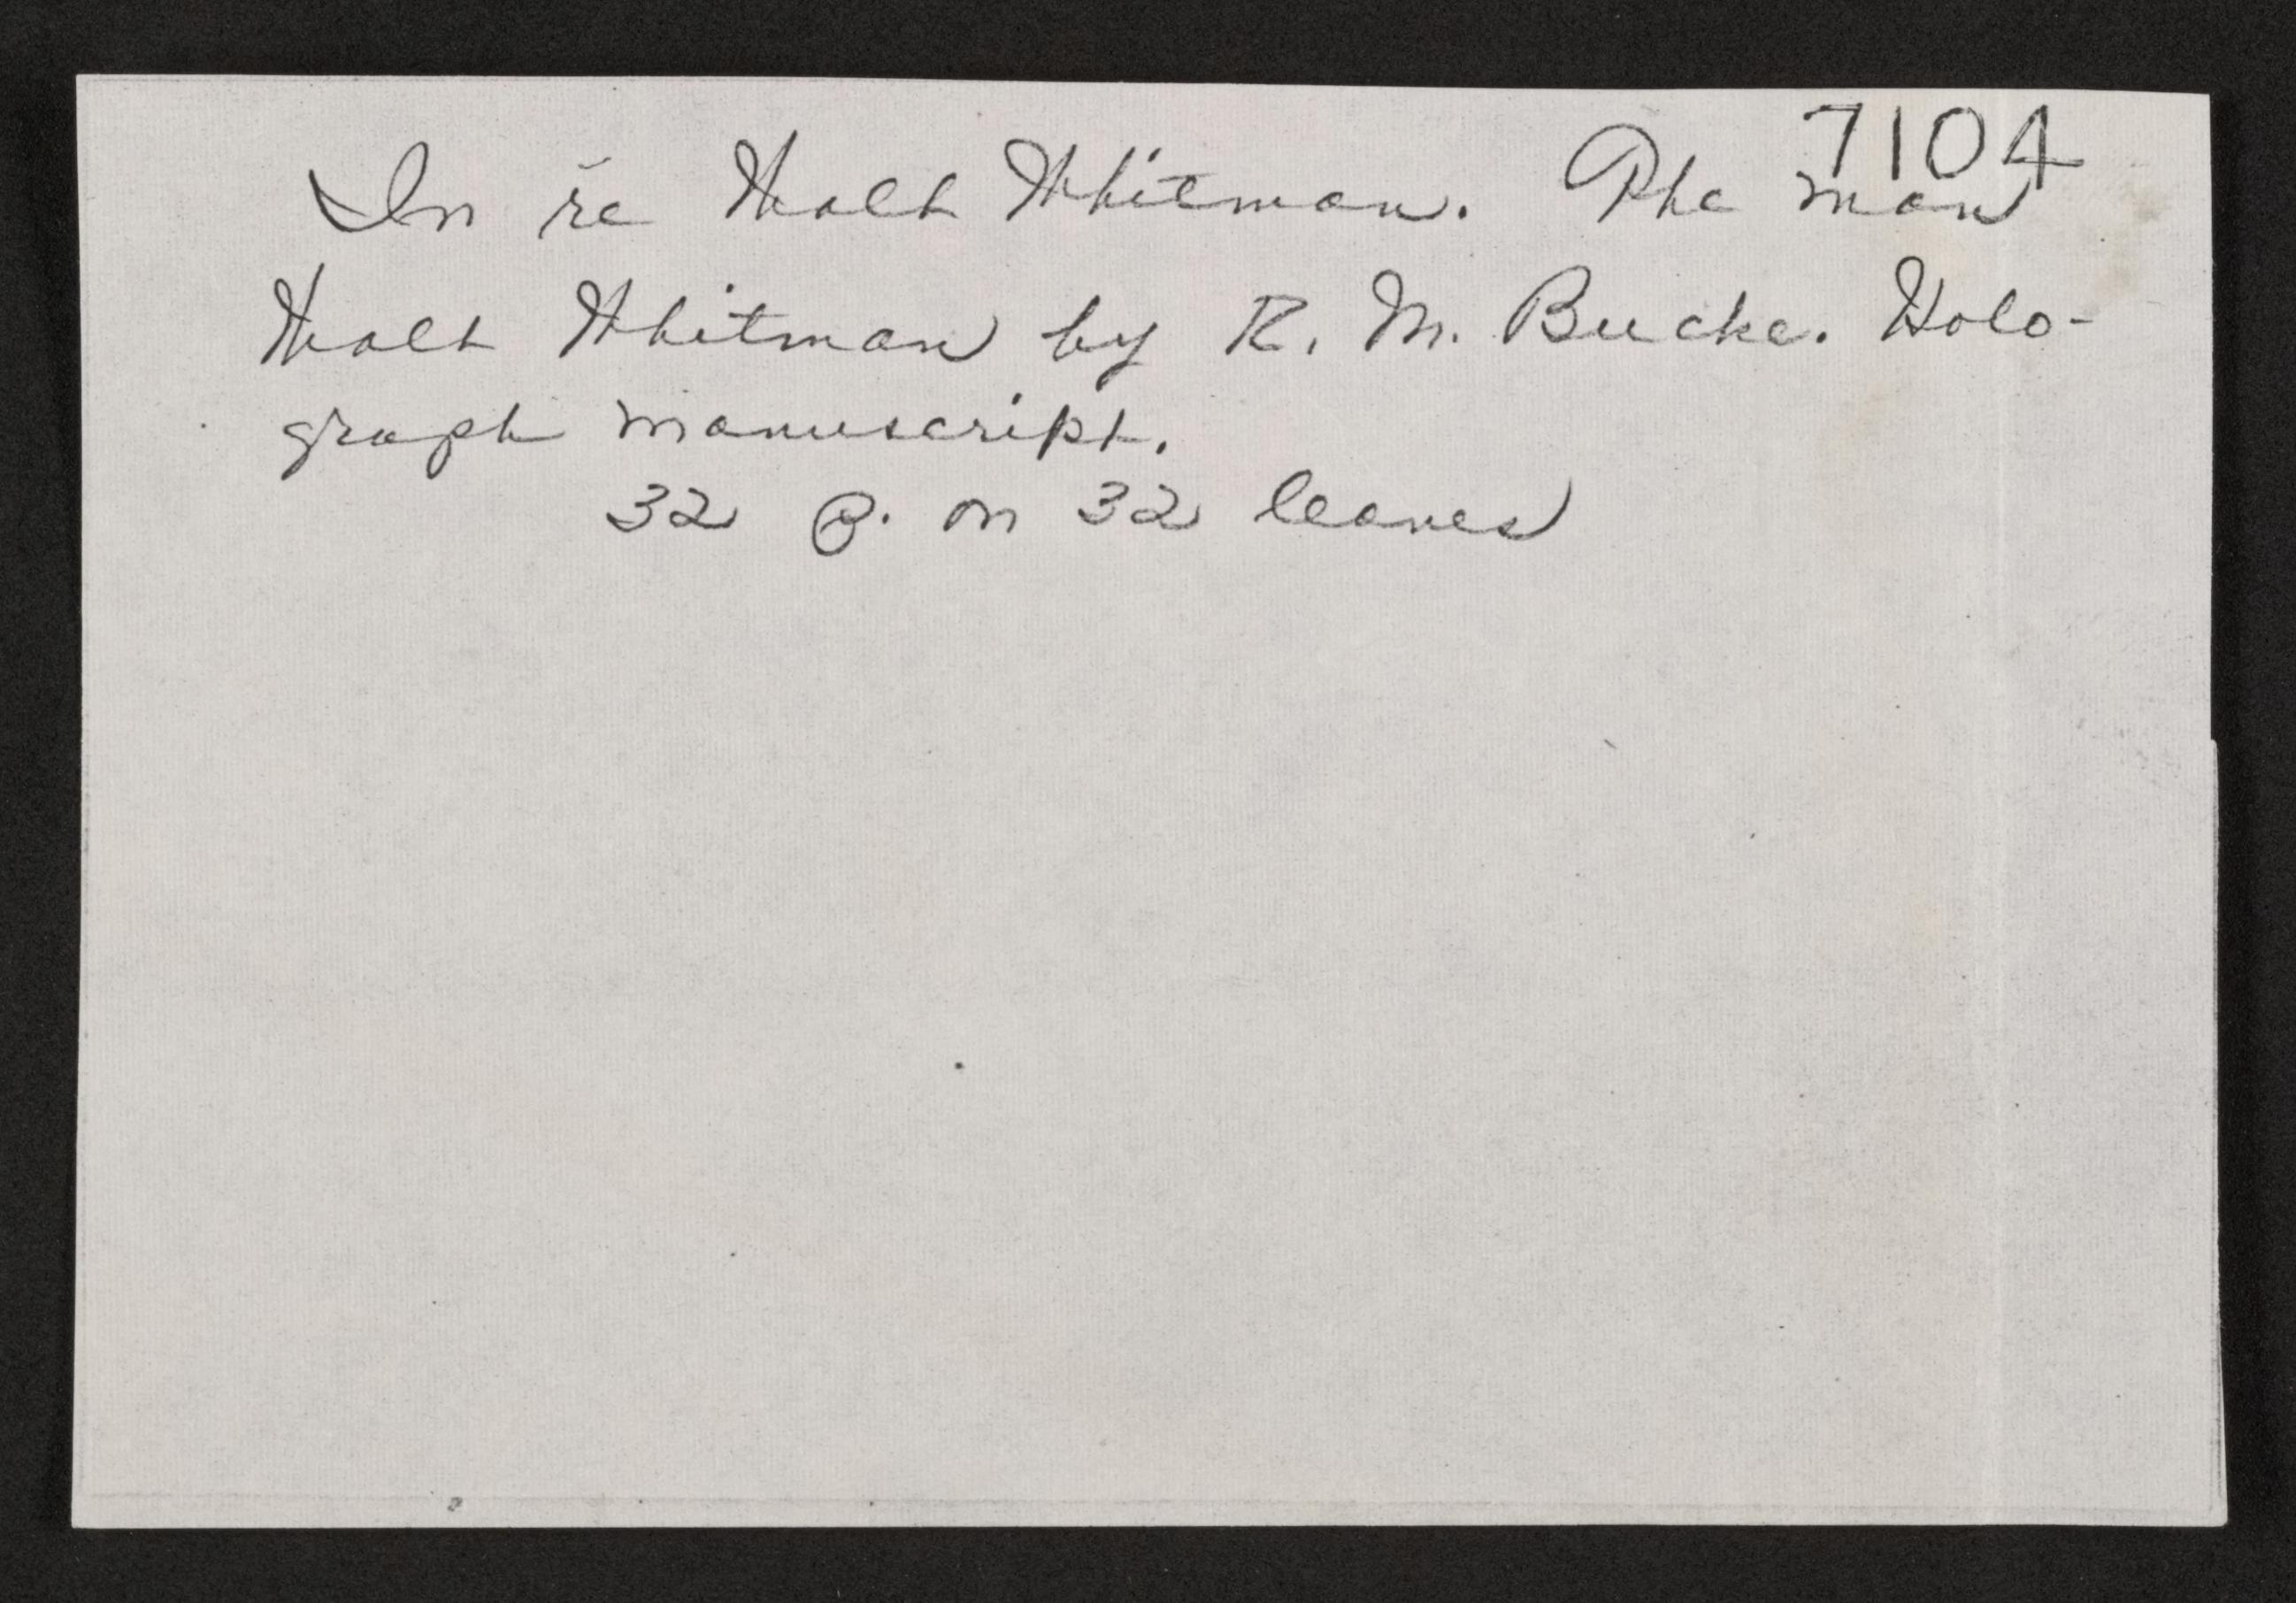 7104
In re Walt Whitman. The man
Walt Whitman by R. M. Bucke. Holo-
graph manuscript.
32 p. on 32 leaves